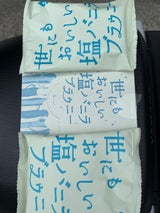 世にも
おいしい
塩バニラ
ブラウニー
世にも
おいしい
塩バニラ
ブラウニー
世にも
おいしい
塩バニラ
ブラウニー